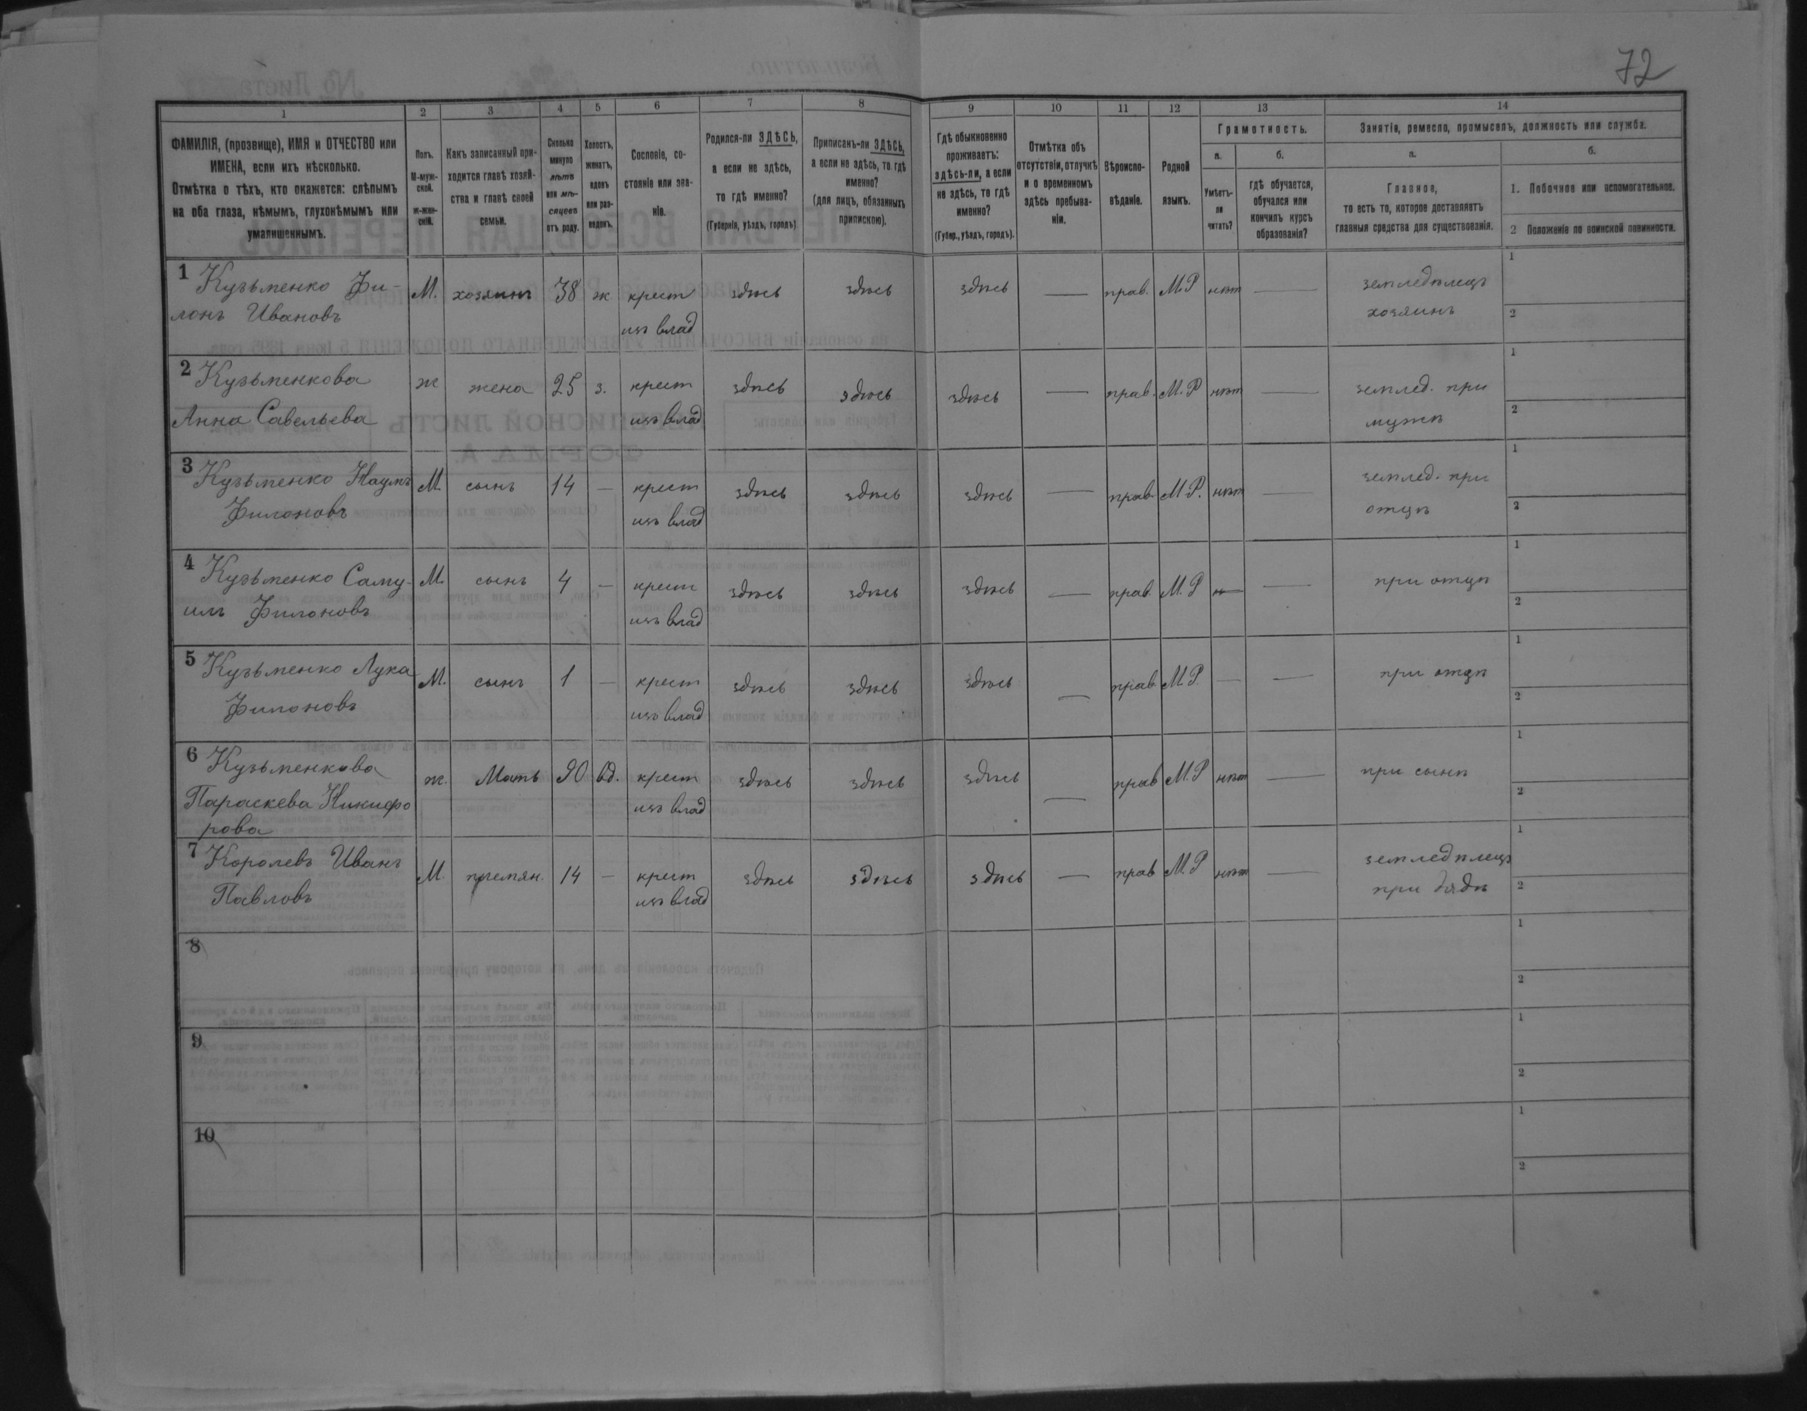 72
1 2 3 4 5 6 7 8 9 10 11 12 13 14
ФАМИЛІЯ, (прозвище), ИМЯ и ОТЧЕСТВО или
ИМЕНА, если ихъ нѣсколько.
Отмѣтка о тѣхъ, кто окажется: слѣпымъ
на оба глаза, нѣмымъ, глухонѣмымъ или
умалишеннымъ.
Полъ.
М-муж-
ской.
ж-жен-
скій.
Какъ записанный при-
ходится главѣ хозяй-
ства и главѣ своей
семьи.
Сколько
минуло
лѣтъ
или мѣ-
сяцевъ
отъ роду.
Холостъ,
женатъ,
вдовъ
или раз-
веденъ.
Сословіе, со-
стояніе или зва-
ніе.
Родился-ли ЗДѢСЬ,
а если не здѣсь,
то гдѣ именно?
(Губернія, уѣздъ, городъ).
Приписанъ-ли ЗДѢСЬ,
а если не здѣсь, то гдѣ
именно?
(для лицъ, обязанныхъ
припискою).
Гдѣ обыкновенно
проживаетъ:
здѣсь-ли, а если
не здѣсь, то гдѣ
именно?
(Губер., уѣздъ, городъ).
Отмѣтка объ
отсутствіи, отлучкѣ
и о временномъ
здѣсь пребыва-
ніи.
Вѣроиспо-
вѣданіе.
Родной
языкъ.
Грамотность.
а.
Умѣетъ-
ли
читать?
б.
гдѣ обучается,
обучался или
кончилъ курсъ
образованія?
Занятія, ремесло, промыселъ, должность или служба.
а.
Главное,
то есть то, которое доставляетъ
главныя средства для существованія.
б.
1. Побочное или вспомогательное.
2 Положеніе по воинской повинности.
1 Кузьменко Фи-
лонъ Ивановъ
М. хозяинъ 38 ж крест
изъ влад
здѣсь здѣсь здѣсь — прав. М.Р нѣт — земледѣлецъ
хозяинъ
1
2
2 Кузьменкова
Анна Савельева
ж жена 25 з. крест
изъ влад
здѣсь здѣсь здѣсь — прав. М.Р нѣт — землед. при
мужѣ
1
2
3 Кузьменко Наумъ
Филоновъ
М. сынъ 14 — крест
изъ влад
здѣсь здѣсь здѣсь — прав. М.Р. нѣт — землед. при
отцѣ
1
2
4 Кузьменко Саму-
илъ Филоновъ
М. сынъ 4 — крест
изъ влад
здѣсь здѣсь здѣсь — прав. М.Р — — при отцѣ
1
2
5 Кузьменко Лука
Филоновъ
М. сынъ 1 — крест
изъ влад
здѣсь здѣсь здѣсь — прав М.Р. — — при отцѣ
1
2
6 Кузьменкова
Параскева Никифо
рова
ж. Мать 90 вд. крест
изъ влад
здѣсь здѣсь здѣсь — прав М.Р нѣт — при сынѣ
1
2
7 Королевъ Иванъ
Павловъ
М. племян. 14 — крест
изъ влад
здѣсь здѣсь здѣсь — прав М.Р нѣт — земледѣлецъ
при дядѣ
1
2
8
1
2
9
1
2
10
1
2